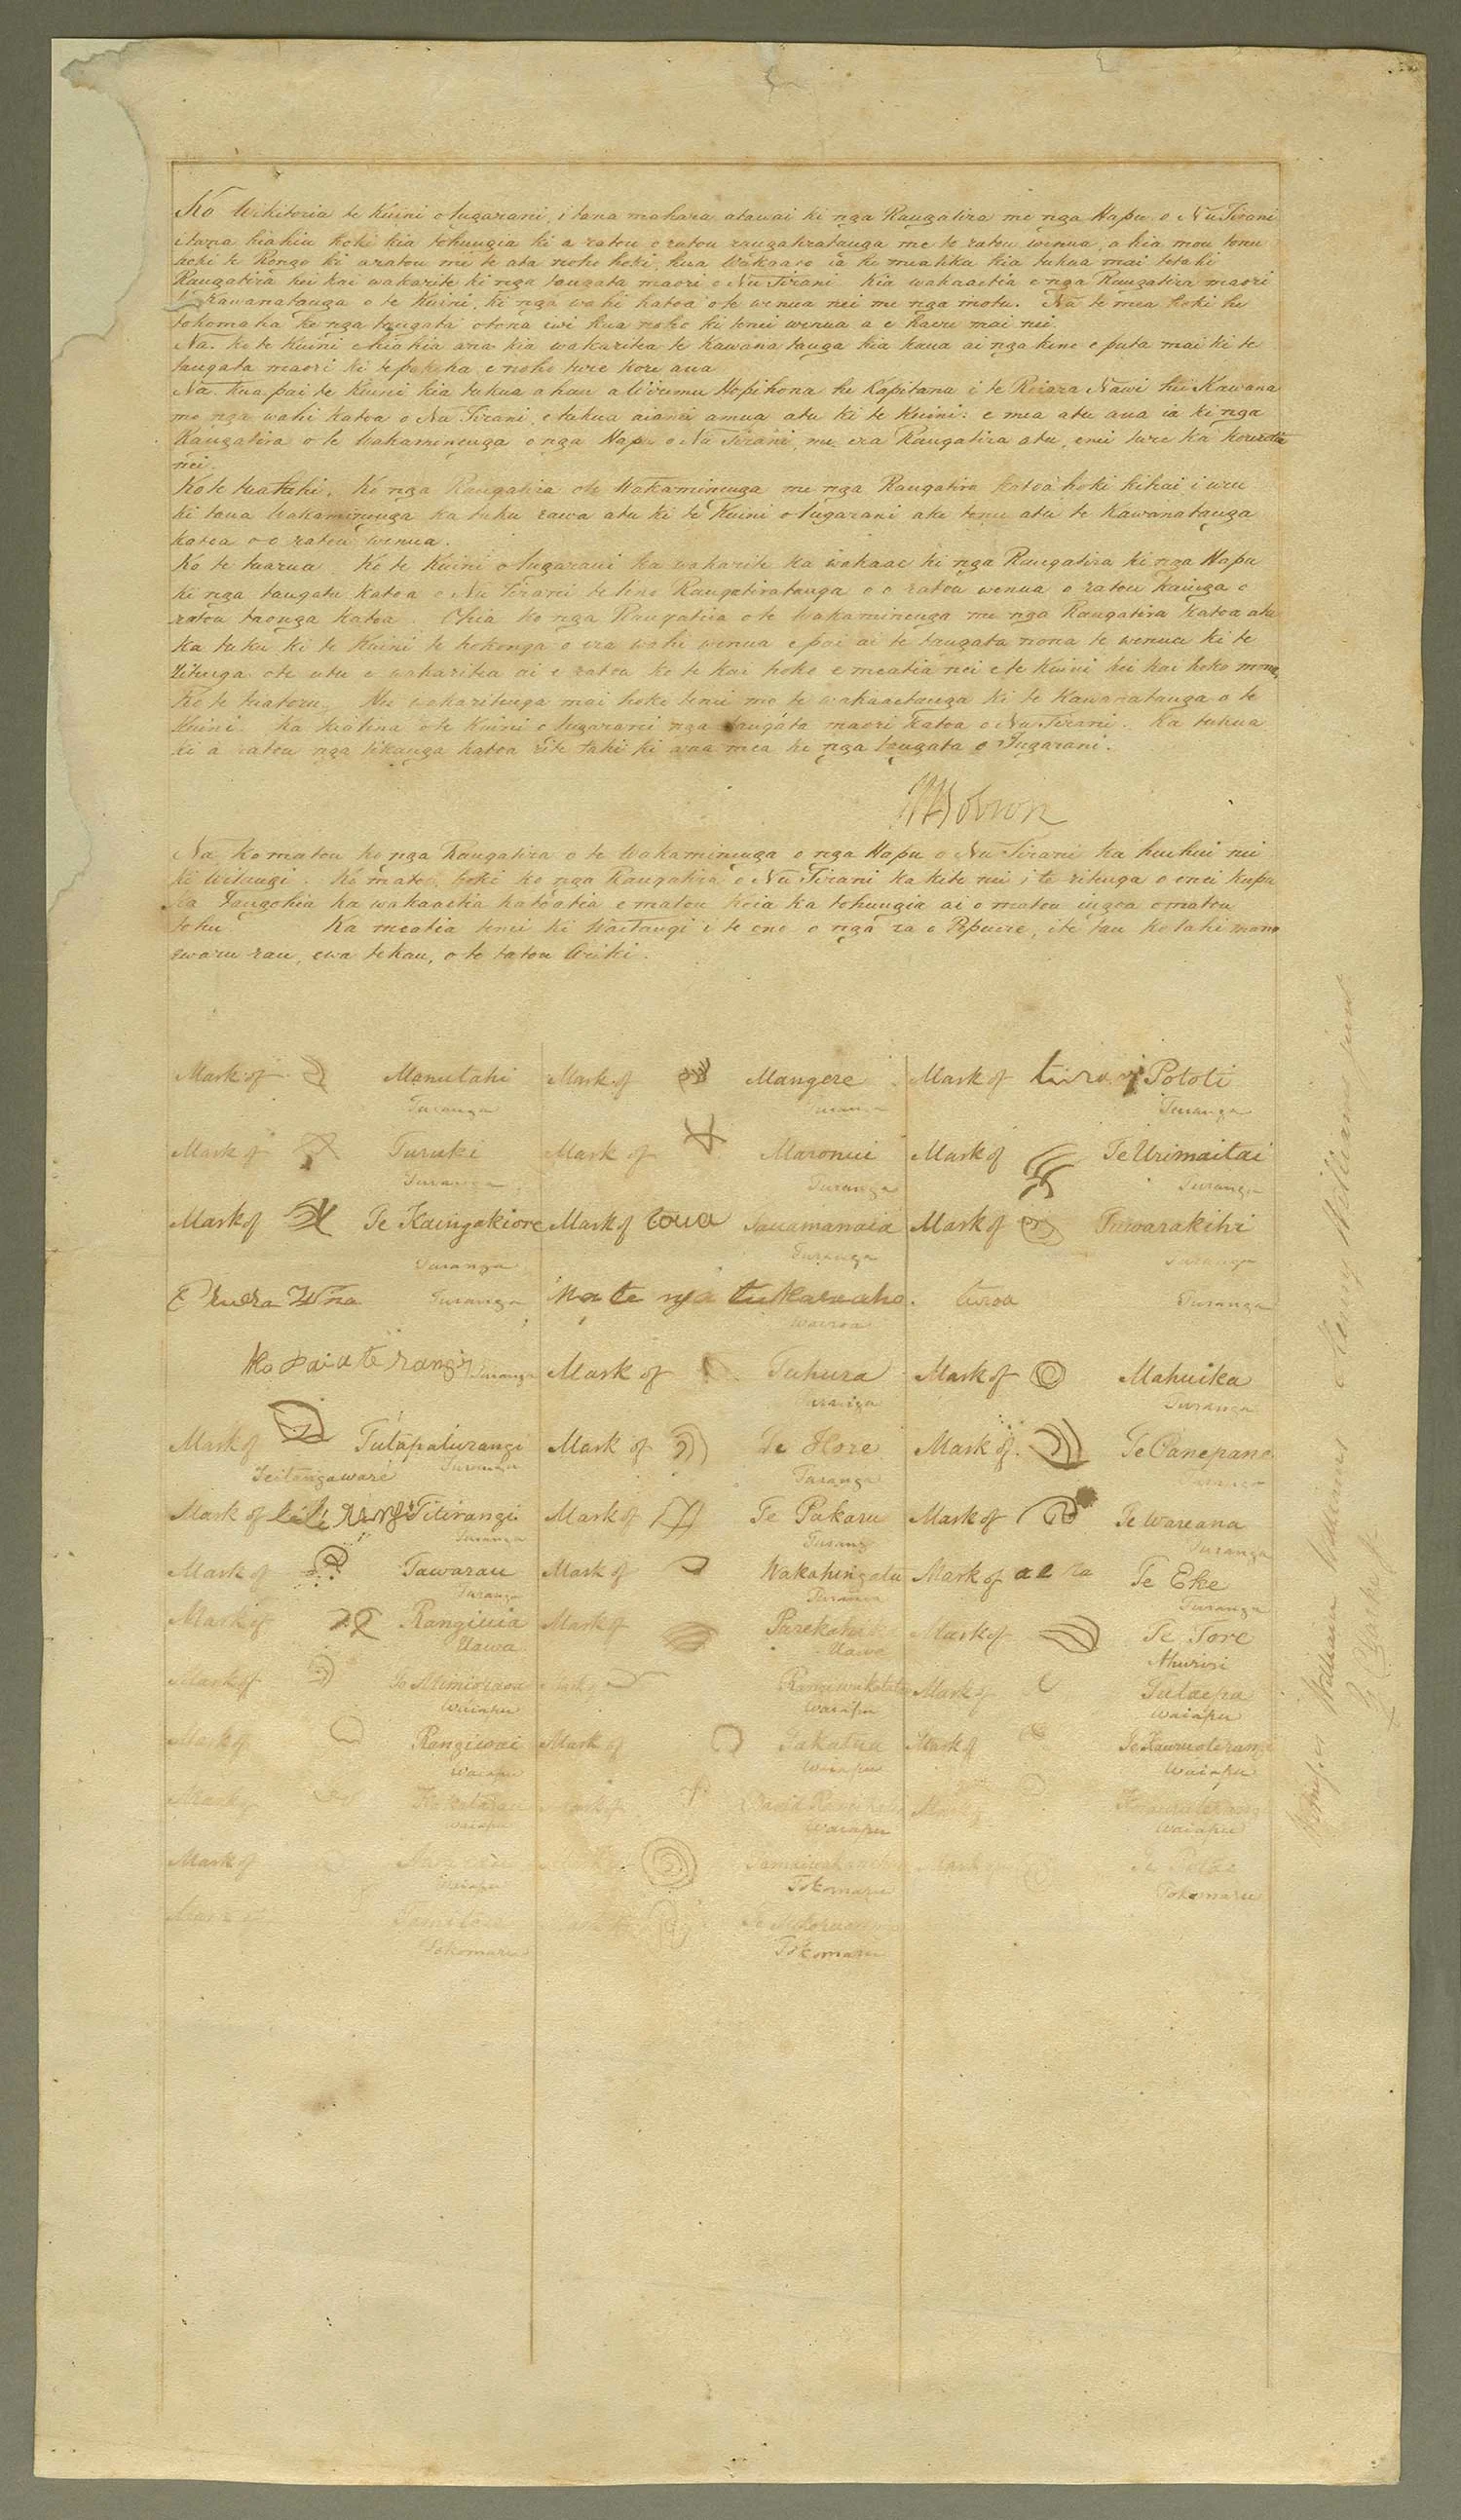 Ko Wikitoria te Kuini o Ingarani, i tana mahara atawai ki nga Rangatira me nga Hapu o Nu Tirani
i tana hiahia hoki kia tohungia ki a ratou o ratou rangatiratanga me to ratou wenua, a kia mau tonu
hoki te Rongo ki a ratou me te ata noho hoki, kua wakaaro ia he mea tika kia tukua mai tetahi
Rangatira hei kai wakarite ki nga tangata maori o Nu Tirani Kia wakaaetia e nga Rangatira maori
te Kawanatanga o te Kuini, ki nga wahi katoa o te wenua nei me nga motu. Na te mea hoki he
tokomaha ke nga tangata o tona iwi kua noho ki tenei wenua a e haere mai nei.
Na. ko te Kuini e hiahia ana kia wakaritea te Kawanatanga kia kaua ai nga kino e puta mai ki te
tangata maori ki te pakeha e noho ture kore ana
Na. kua pai te Kuini kia tukua a hau a Wiremu Hopihona he Kapitana i te Roiara Nawi hei Kawana
mo nga wahi katoa o Nu Tirani, e tukua aianei amua atu ki te Kuini: e mea atu ana ia ki nga
Rangatira o te Wakaminenga o nga Hapu o Nu Tirani, me era Rangatira atu, enei ture ka korerotia
nei.
Ko te tuatahi. Ko nga Rangatira o te Wakaminenga me nga Rangatira katoa hoki kihai i uru
ki taua Wakaminenga ka tuku rawa atu ki te Kuini o Ingarani ake tonu atu te Kawanatanga
katoa o o ratou wenua.
Ko te tuarua Ko te Kuini o Ingarani ka wakarite ka wakaae ki nga Rangatira ki nga Hapu
ki nga tangata katoa o Nu Tirani te tino Rangatiratanga o o ratou wenua o ratou kainga o
ratou taonga katoa Otiia ko nga Rangatira o te Wakaminenga me nga Rangatira katoa atu
ka tuku ki te Kuini te hokonga o era wahi wenua e pai ai te tangata nona te wenua ki te
ritenga o te utu e wakaritea ai e ratou ko te kai hoko e meatia nei e te Kuini hei kai hoko mona,
Ko te tuatoru. Hei wakaritenga mai hoki tenei mo te wakaaetanga ki te Kawanatanga o te
Kuini. Ka tiakina e te Kuini o Ingarani nga tangata maori katoa o Nu Tirani. Ka tukua
ki a ratou nga tikanga katoa rite tahi ki ana mea ki nga tangata o Ingarani.
W Hobson
Na, ko matou ko nga Rangatira o te Wakaminenga o nga Hapu o Nu Tirani ka huihui nei
ki Waitangi. Ko matou hoki ko nga Rangatira o Nu Tirani ka kite nei i te ritenga o enei kupu
ka tangohia ka wakaaetia katoatia e matou koia ka tohungia ai o matou ingoa o matou
tohu Ka meatia tenei ki Waitangi i te ono o nga ra o Pepuere, i te tau kotahi mano
ewaru rau, ewa tekau, o to tatou Ariki.
Mark of Manutahi Mark of Mangere Mark of turoa Pototi
Turanga Turanga Turanga
Mark of Turuki Mark of Maronui Mark of Te Urimaitai
Turanga Turanga Turanga
Mark of Te Kaingakiore Mark of toua Tauamanaia Mark of Tuwarakihi
Turanga Turanga Turanga
Eruera Wna Turanga turoa Turanga
Wairoa
ko paia te rangi Turanga Mark of Tuhura Mark of Mahuika
Turanga Turanga
Mark of Tutapaturangi Mark of Te Hore Mark of Te Panepane
Teitangaware Turanga Turanga Turanga
Mark of titi rangi Titirangi Mark of Te Pakaru Mark of Te Wareana
Turanga Turang Turanga
Mark of Tawarau Mark of Wakahingatu Mark of Te Eke
Turanga Turanga Turanga
Mark of Rangiuia Mark of Parekahika Mark of Te Tore
Uawa Uawa Ahuriri
Mark of Te Mimiopaoa Mark of Rangiwakatatae Mark of Tutaepa
Waiapu Waiapu Waiapu
Mark of Rangiwai Mark of Takatua Mark of Te Kauruoterangi
Waiapu Waiapu Waiapu
Mark of Mark of David Mark of
Waiapu Waiapu Waiapu
Mark of Mark of Mark of Te Potae
Waiapu Tokomaru Tokomaru
Mark of Mark of
Tokomaru Tokomaru
Witnesses William Williams Henry Williams junr
G Clarke Jr